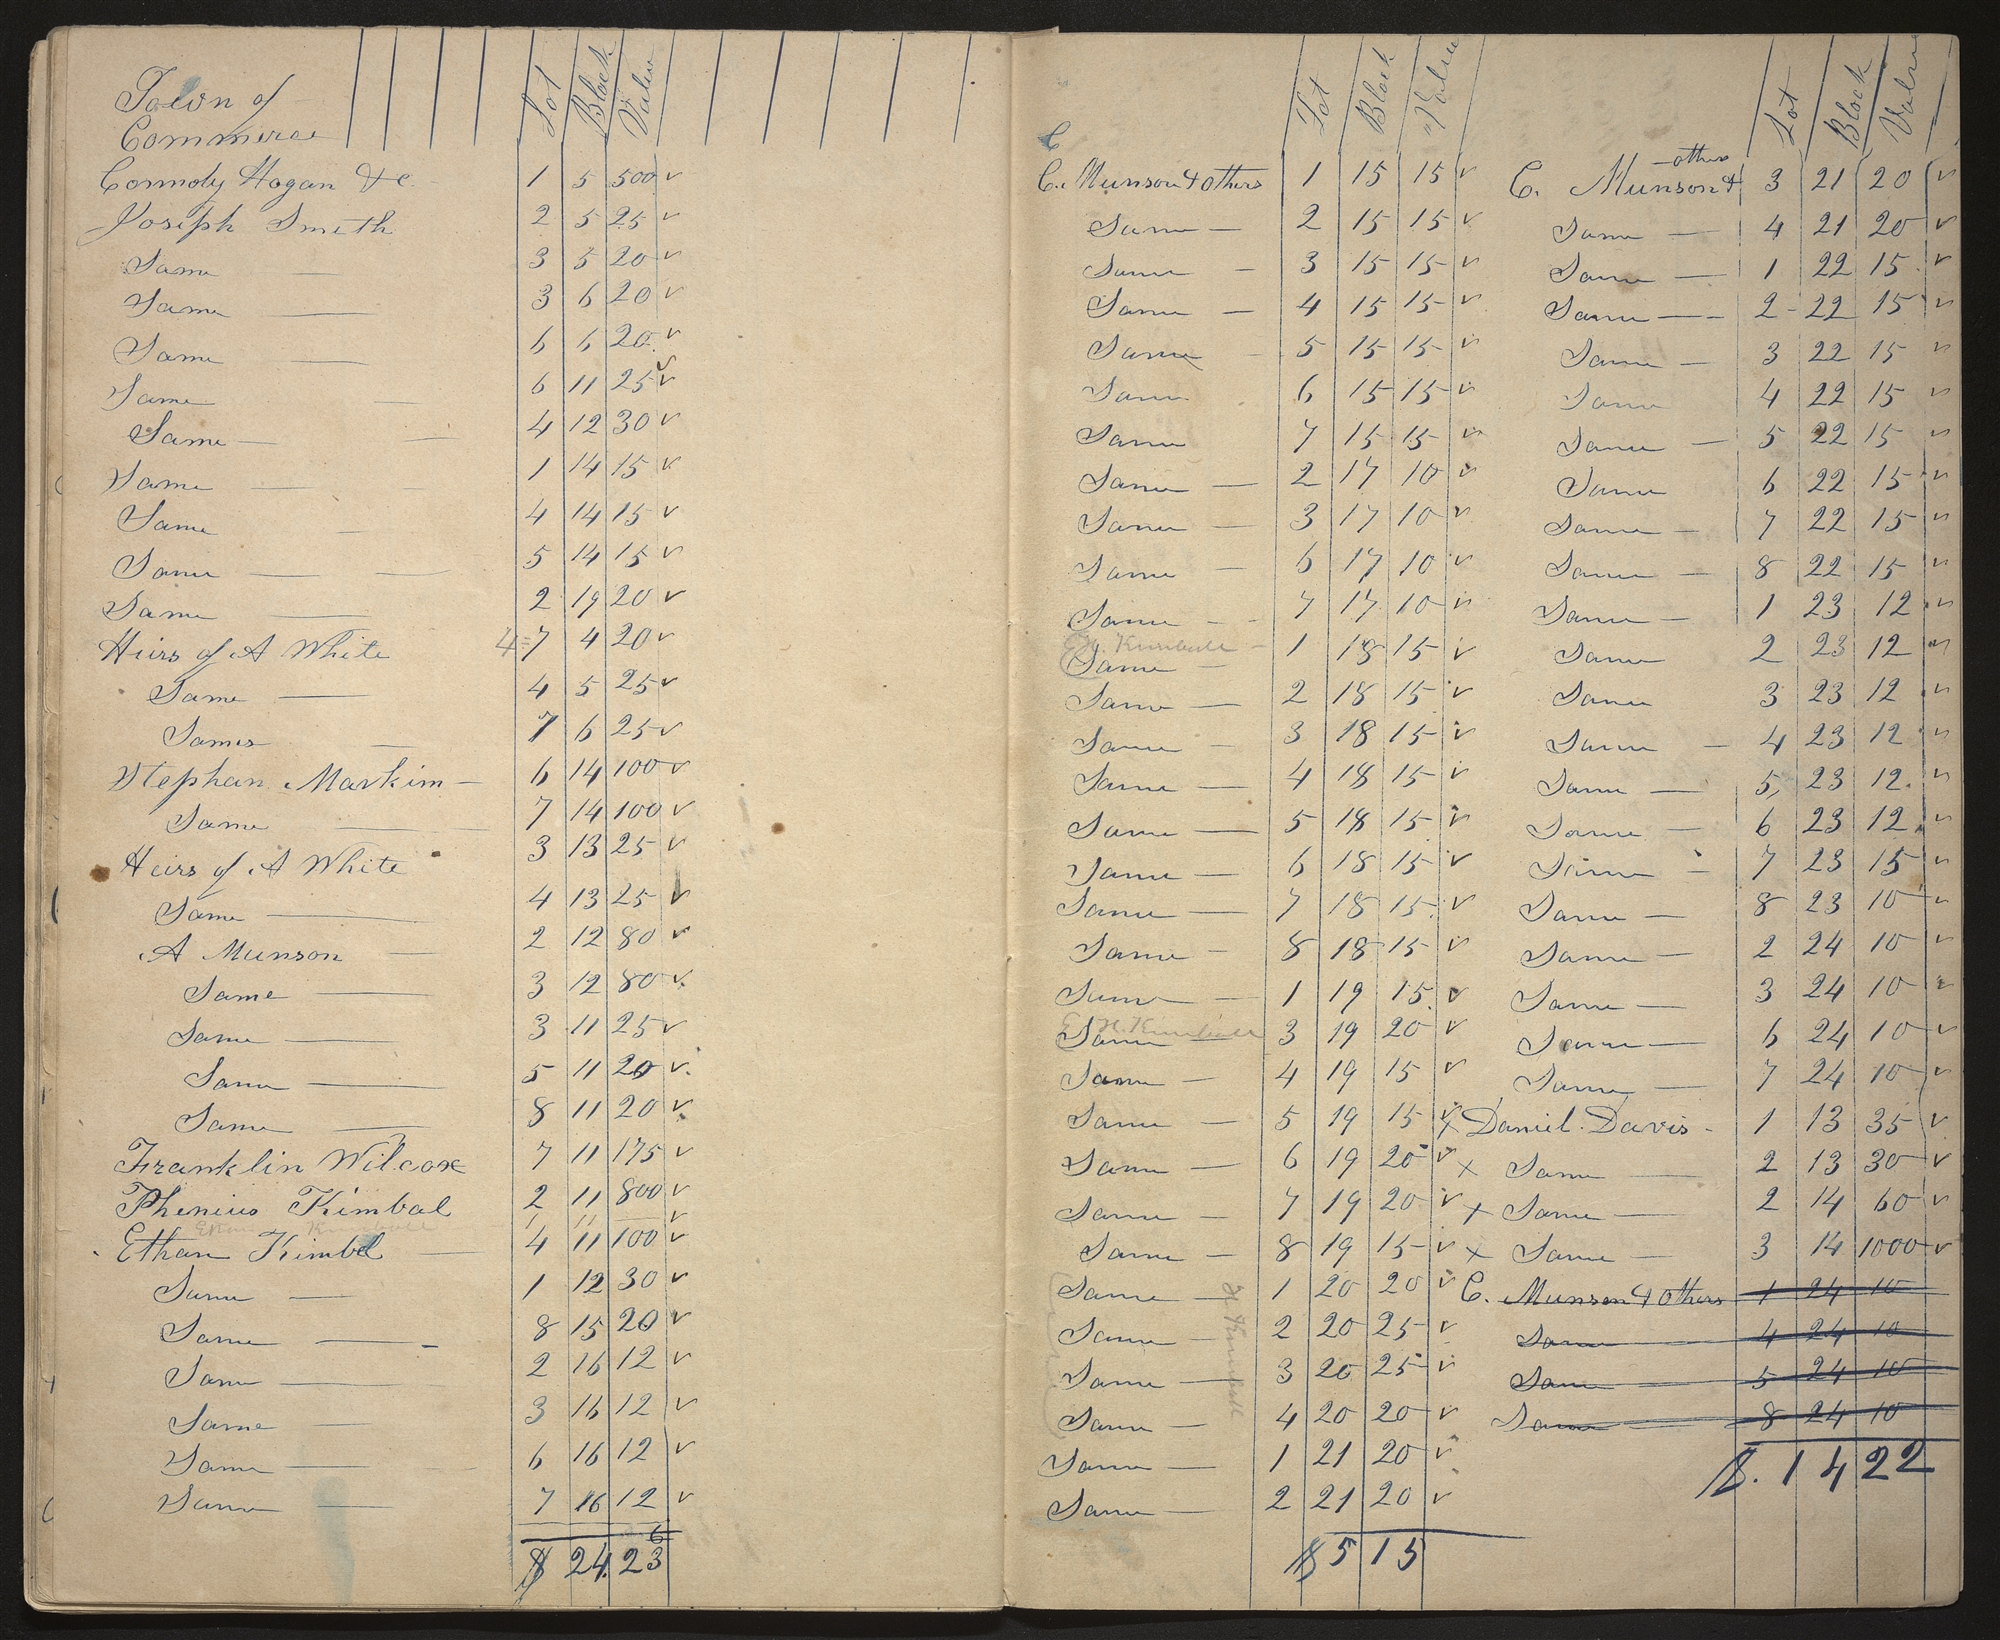 Town of Lot Block Value
Commerce
Connoly Hogan &c. 1 5 500 v
Joseph Smith 2 5 25 v
Same 3 5 20 v
Same 3 6 20 v
Same 6 6 20 v
Same 6 11 25 v
Same 4 12 30 v
Same 1 14 15 v
Same 4 14 15 v
Same 5 14 15 v
Same 2 19 20 v
Heirs of A White 4=7 4 20 v
Same 4 5 25 v
Same 7 6 25 v
Stephan Markim 6 14 100 v
Same 7 14 100 v
Heirs of A White 3 13 25 v
Same 4 13 25 v
A Munson 2 12 80 v
Same 3 12 80 v
Same 3 11 25 v
Same 5 11 20 v
Same 8 11 20 v
Franklin Wilcox 7 11 175 v
Phenius Kimbal 2 11 800 v
Ethan Kimbel 4 11 100 v
Same 1 12 30 v
Same 8 15 20 v
Same 2 16 12 v
Same 3 16 12 v
Same 6 16 12 v
Same 7 16 12 v
6
$ 24.23
Lot Block Value
C. Munson & others 1 15 15 v
Same 2 15 15 v
Same 3 15 15 v
Same 4 15 15 v
Same 5 15 15 v
Same 6 15 15 v
Same 7 15 15 v
Same 2 17 10 v
Same 3 17 10 v
Same 6 17 10 v
Same 7 17 10 v
H. Kimball
Same 1 18 15 v
Same 2 18 15 v
Same 3 18 15 v
Same 4 18 15 v
Same 5 18 15 v
Same 6 18 15 v
Same 7 18 15 v
Same 8 18 15 v
Same 1 19 15 v
H. Kimball
Same 3 19 20 v
Same 4 19 15 v
Same 5 19 15 v
Same 6 19 20 v
Same 7 19 20 v
Same 8 19 15 v
Same 1 20 20 v
Same 2 20 25 v
H Kimball
Same 3 20 25 v
Same 4 20 20 v
Same 1 21 20 v
Same 2 21 20 v
$ 515
Lot Block Value
others
C. Munson & 3 21 20 v
Same 4 21 20 v
Same 1 22 15 v
Same 2 22 15 v
Same 3 22 15 v
Same 4 22 15 v
Same 5 22 15 v
Same 6 22 15 v
Same 7 22 15 v
Same 8 22 15 v
Same 1 23 12 v
Same 2 23 12 v
Same 3 23 12 v
Same 4 23 12 v
Same 5 23 12 v
Same 6 23 12 v
Same 7 23 15 v
Same 8 23 10 v
Same 2 24 10 v
Same 3 24 10 v
Same 6 24 10 v
Same 7 24 10 v
x Daniel Davis 1 13 35 v
x Same 2 13 30 v
x Same 2 14 60 v
x Same 3 14 1000 v
C. Munson & others 1 24 10
Same 4 24 10
Same 5 24 10
Same 8 24 10
$. 1422